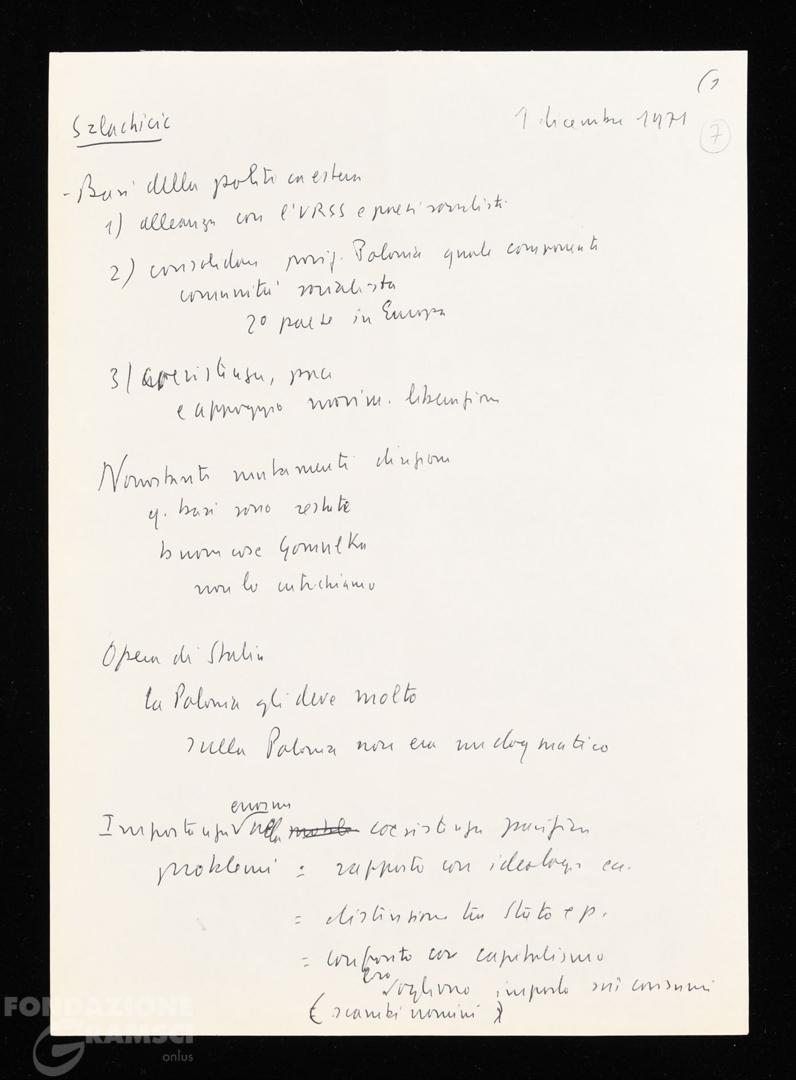 (1
Szlachicic
1 dicembre 1971
7
- Basi della politica estera
1) alleanza con l'URSS e paesi socialisti
2) consolidare posiz. Polonia quale componente
comunità socialista
2º paese in Europa
3) coesistenza, pace
e appoggio movim. liberazione
Nonostante mutamenti direzione
q. basi sono restate
buone cose Gomulka
non lo critichiamo
Opera di Stalin
la Polonia gli deve molto
sulla Polonia non era un dogmatico
Importanza enorme della coesistenza pacifica
problemi = rapporto con ideologia ecc.
= distinzione tra Stato e p.
= confronto con capitalismo
essi vogliono imporlo sui consumi
(scambi uomini)
FONDAZIONE
GRAMSCI
onlus